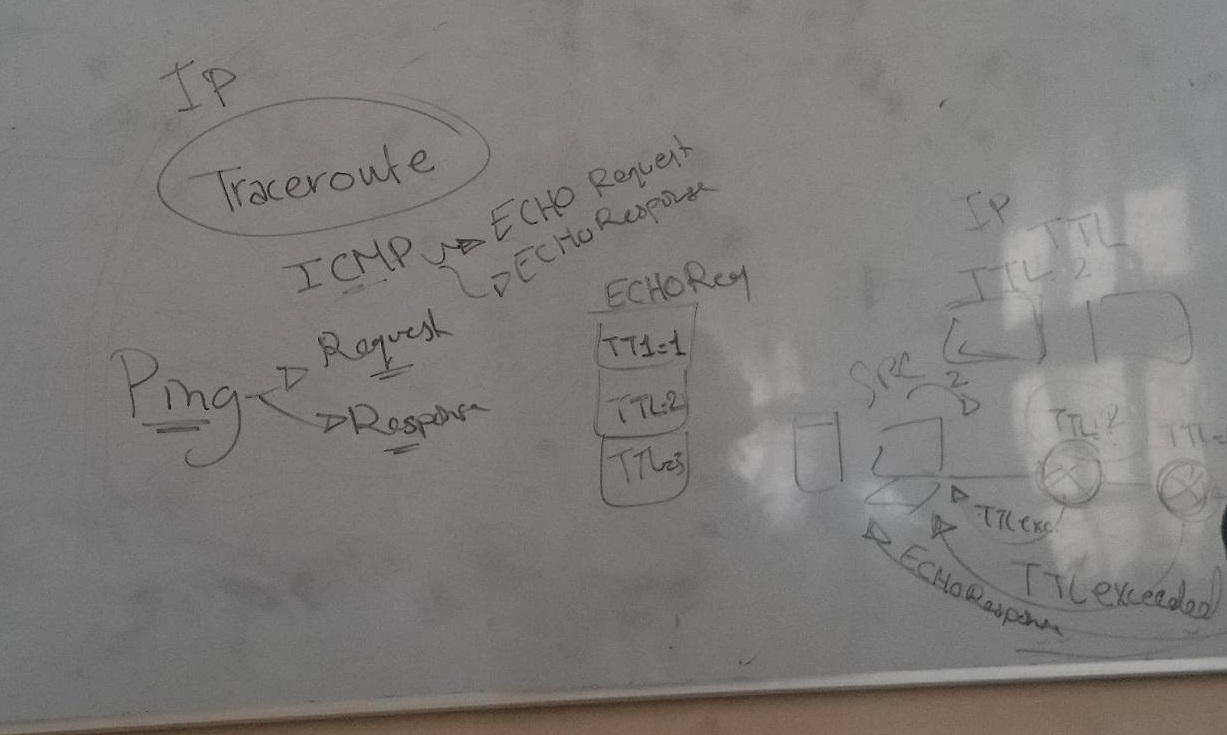 IP
Traceroute
ICMP
ECHO Request
ECHO Response
Ping
Request
Response
ECHO Req
TT1=1
TTL=2
TTL=3
IP
TTL
TTL 2
SRC
2
TTL=
TTL exc
TTL exceeded
ECHO Response